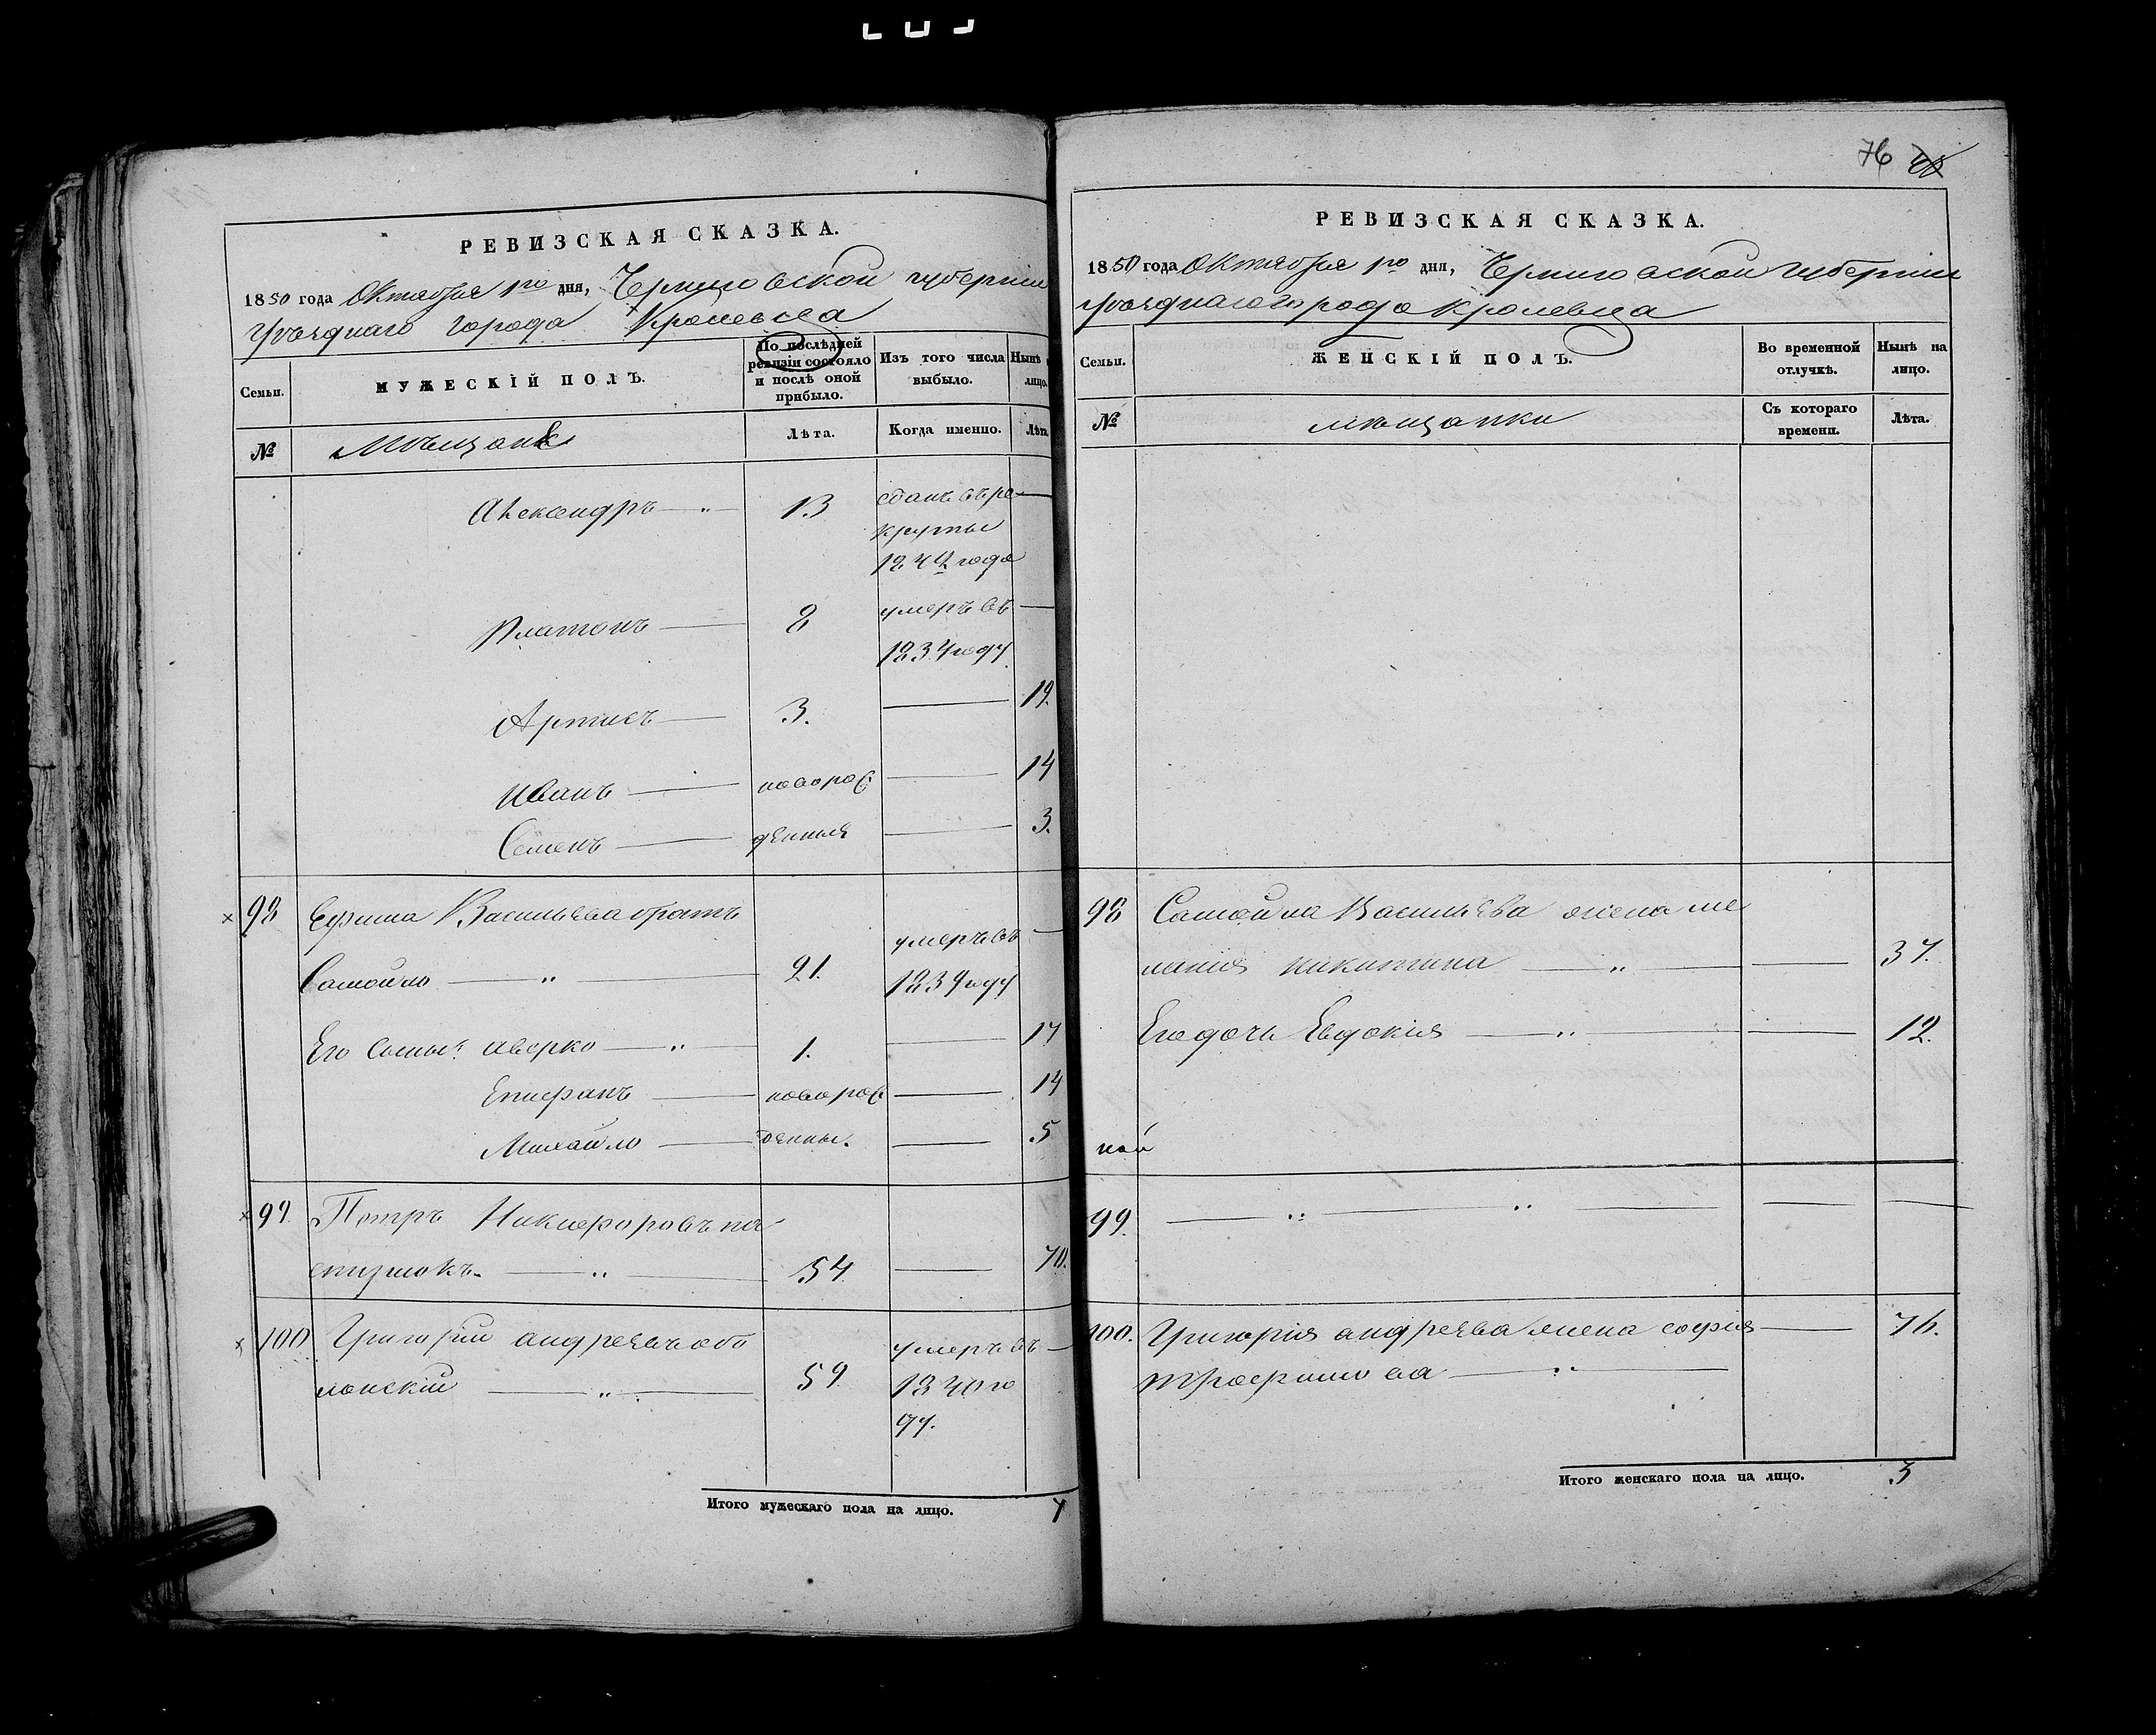 РЕВИЗСКАЯ СКАЗКА.
1850 года Октября 1го дня, Черниговской губернии
уѣзднаго города Кролевца
Семьи.
МУЖЕСКІЙ ПОЛЪ.
По послѣдней ревизіи состояло и послѣ оной прибыло.
Изъ того числа выбыло.
Нынѣ лицо.
№
Мѣщане
Лѣта.
Когда именно.
Лѣта
Александръ — 13 сданъ въ ре— 
круты
года
Платонъ — 8 умеръ въ —
1834 году
3. — 19.
Иванъ — новорож — 14
Семенъ — денныя — 3.
98 Ефима Васильева братъ
Самойло — „ — 21. умеръ въ —
1839 году
Его сыны: Аверко — „ — 1. — 17
Епифанъ — новорож — 14
Михайло — денны. — 5
99. Петръ Никифоровъ
54 — 70.
100 Григорій Андреевъ обо
лонскій — „ — 59 умеръ въ —
1840 го
ду.
Итого мужескаго пола на лицо. 7
76
РЕВИЗСКАЯ СКАЗКА.
1850 года Октября 1го дня, Черниговской губерніи
уѣзднаго города Кролевца
Семьи.
ЖЕНСКІЙ ПОЛЪ.
Во временной отлучкѣ.
Нынѣ на лицо.
№
мѣщанки
Съ котораго времени.
Лѣта.
98 Самойла Васильева жена ме
ланія Никитина — „ — — 37.
Его дочь Евдокія — „ — — 12.
99. — „ — „ — — —
100. Григорія Андреева жена софія — 76.
трофимова — „ —
Итого женскаго пола на лицо. 3